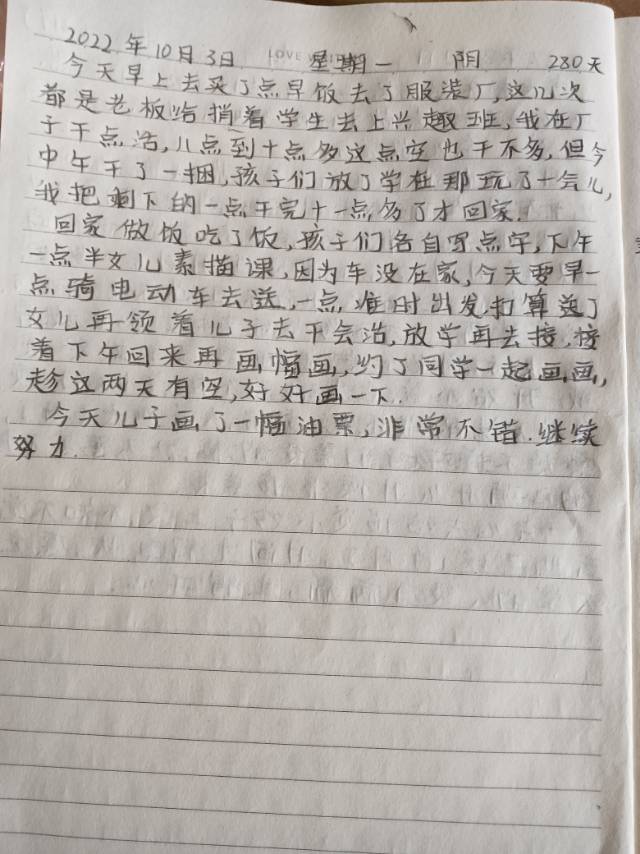 2022年10月3日 LOVE 星期一 阴 280天
今天早上去买了点早饭去了服装厂,这几次
都是老板给捎着学生去上兴趣班,我在厂
子干点活,八点到十点多这点空也干不多,但今
中午干了一捆,孩子们放了学在那玩了十气儿,
我把剩下的一点干完十一点多了才回家.
回家做饭吃了饭,孩子们各自写点字,下午
一点半女儿素描课,因为车没在家,今天要早一
点骑电动车去送,一点准时出发,打算送了
女儿再领着儿子去干会活,放学再去接,接
着下午回来再画幅画,约了同学一起画画,
趁这两天有空,好好画一下.
今天儿子画了一幅油票,非常不错.继续
努力.